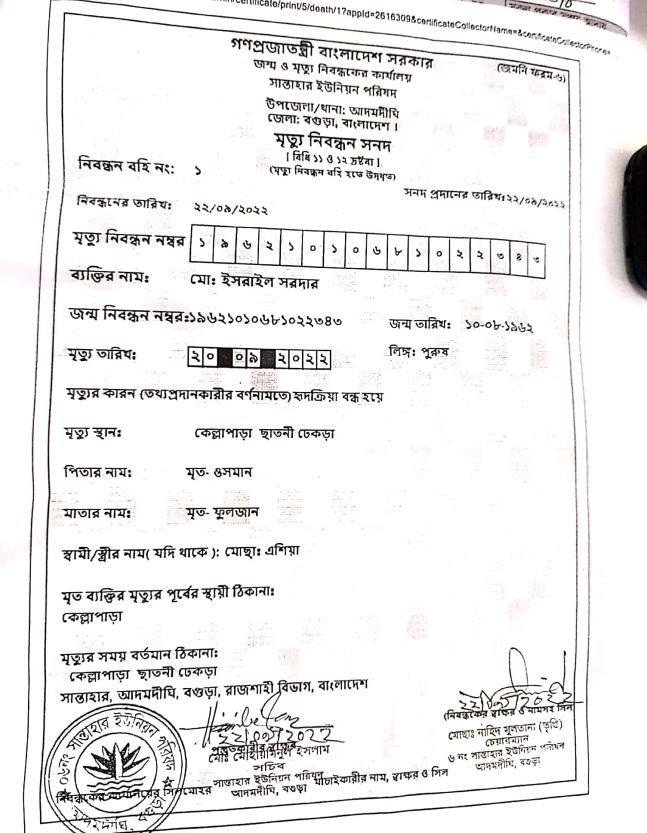 certificate/print/5/death/1?appId=2616309&certificateCollectorName=&certificateCollectorPhone=
গণপ্রজাতন্ত্রী বাংলাদেশ সরকার
(জমনি ফরম-৬)
জন্ম ও মৃত্যু নিবন্ধকের কার্যালয়
সান্তাহার ইউনিয়ন পরিষদ
উপজেলা/থানা: আদমদীঘি
জেলা: বগুড়া, বাংলাদেশ।
মৃত্যু নিবন্ধন সনদ
[বিধি ১১ ও ১২ দ্রষ্টব্য]
(মৃত্যু নিবন্ধন বহি হতে উদ্ধৃত)
নিবন্ধন বহি নং: ১
সনদ প্রদানের তারিখ:২২/০৯/২০২২
নিবন্ধনের তারিখ: ২২/০৯/২০২২
মৃত্যু নিবন্ধন নম্বর ১ ৯ ৬ ২ ১ ০ ১ ০ ৬ ৮ ১ ০ ২ ২ ৩ ৪ ৩
ব্যক্তির নাম: মো: ইসরাইল সরদার
জন্ম নিবন্ধন নম্বর:১৯৬২১০১০৬৮১০২২৩৪৩ জন্ম তারিখ: ১০-০৮-১৯৬২
মৃত্যু তারিখ: ২০ ০৯ ২০২২ লিঙ্গ: পুরুষ
মৃত্যুর কারন (তথ্যপ্রদানকারীর বর্ণনামতে) হৃদক্রিয়া বন্ধ হয়ে
মৃত্যু স্থান: কেল্লাপাড়া ছাতনী ঢেকড়া
পিতার নাম: মৃত- ওসমান
মাতার নাম: মৃত- ফুলজান
স্বামী/স্ত্রীর নাম( যদি থাকে ): মোছা: এশিয়া
মৃত ব্যক্তির মৃত্যুর পূর্বের স্থায়ী ঠিকানা:
কেল্লাপাড়া
মৃত্যুর সময় বর্তমান ঠিকানা:
কেল্লাপাড়া ছাতনী ঢেকড়া
সান্তাহার, আদমদীঘি, বগুড়া, রাজশাহী বিভাগ, বাংলাদেশ
২২/০৯/২০২২
(নিবন্ধকের স্বাক্ষর ও নামসহ সিল
মোছাঃ নাহিদ সুলতানা (তৃপ্তি)
চেয়ারম্যান
৬ নং সান্তাহার ইউনিয়ন পরিষদ
আদমদীঘি, বগুড়া
22/09/2022
সচিব
সান্তাহার ইউনিয়ন পরিষদ
আদমদীঘি, বগুড়া
যাচাইকারীর নাম, স্বাক্ষর ও সিল
নিবন্ধকের কার্যালয়ের সিলমোহর
০৬নং সান্তাহার ইউনিয়ন পরিষদ
আদমদীঘি, বগুড়া